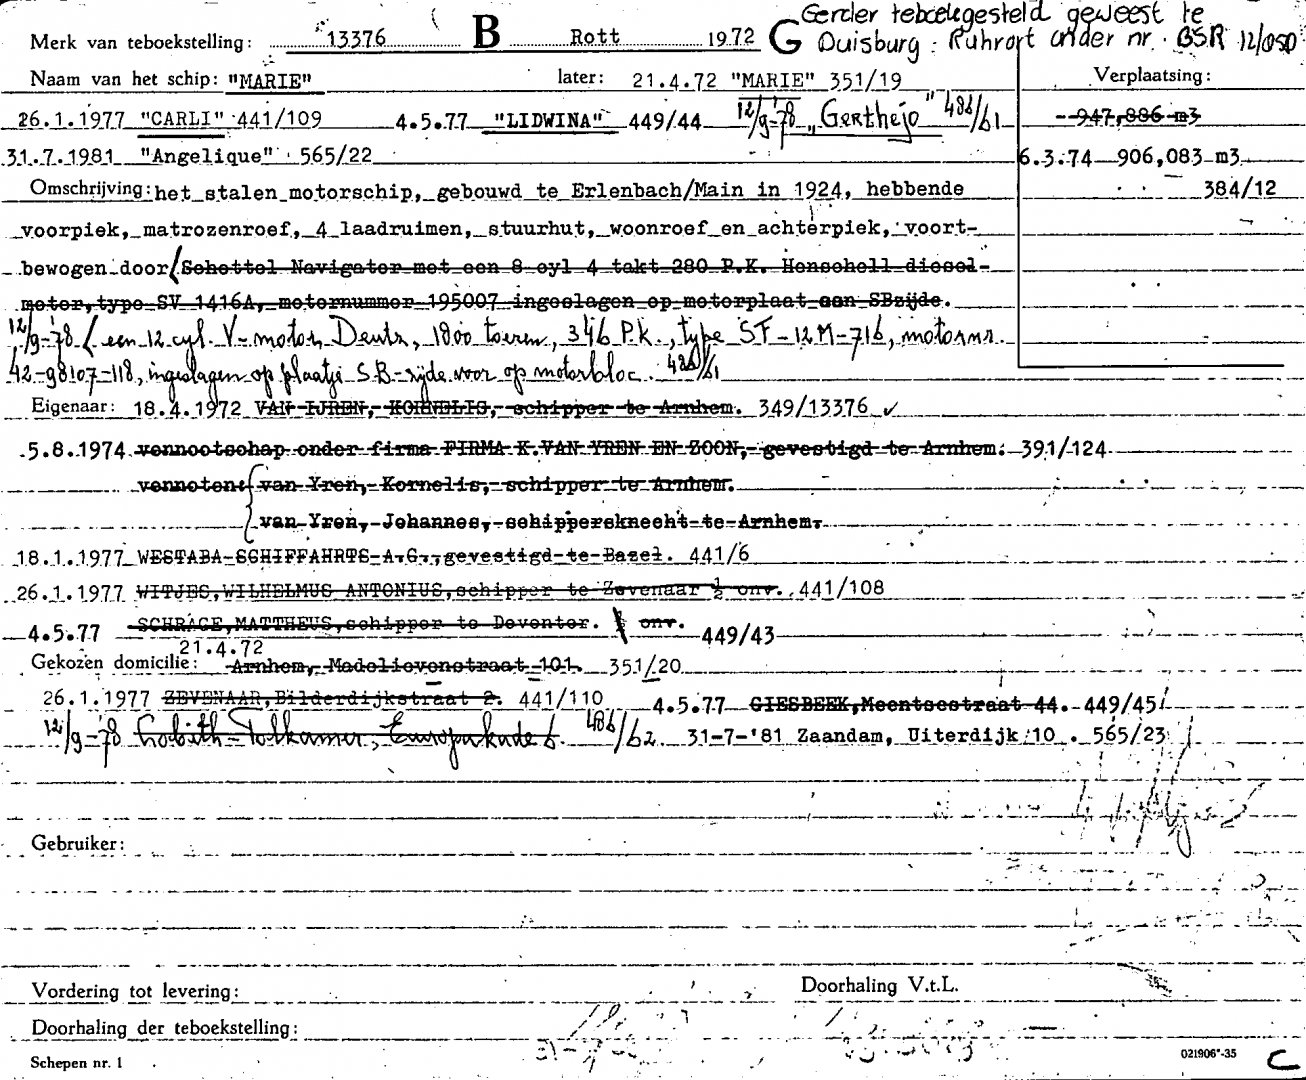 Eerder teboekgesteld geweest te
Merk van teboekstelling: 13376 B Rott 1972 G Duisburg: Ruhrort onder nr. BSR 12/050
Naam van het schip: "MARIE" later: 21.4.72 "MARIE" 351/19 Verplaatsing:
26.1.1977 "CARLI" 441/109 4.5.77 "LIDWINA" 449/44 12/9-'78 "Gerthejo" 486/61 947,886 m3
31.7.1981 "Angelique" 565/22 6.3.74 906,083 m3
Omschrijving: het stalen motorschip, gebouwd te Erlenbach/Main in 1924, hebbende 384/12
voorpiek, matrozenroef, 4 laadruimen, stuurhut, woonroef en achterpiek, voort-
bewogen door Schottel Navigator met een 8 cyl 4 takt 280 P.K. Henschell diesel-
motor, type SV 1416A, motornummer 195007 ingeslagen op motorplaat aan SBzijde.
12/9-'78 een 12 cyl. V-motor, Deutz, 1800 toeren, 346 P.k., type SF-12M-716, motornr.
42-98107-118, ingeslagen op plaatje S.B-zijde voor op motorbloc. 486/61
Eigenaar: 18.4.1972 VAN IJREN, KORNELIS, schipper te Arnhem. 349/13376
5.8.1974 vennootschap onder firma FIRMA K.VAN YREN EN ZOON, gevestigd te Arnhem. 391/124
vennoten: van Yren, Kornelis, schipper te Arnhem.
van Yren, Johannes, schippersknecht te Arnhem.
18.1.1977 WESTABA-SCHIFFAHRTS-A.G., gevestigd te Bazel. 441/6
26.1.1977 WITJES, WILHELMUS ANTONIUS, schipper te Zevenaar ½ onv. 441/108
4.5.77 SCHRAGE, MATTHEUS, schipper te Deventer. onv. 449/43
21.4.72
Gekozen domicilie: Arnhem, Madelievenstraat 101. 351/20
26.1.1977 ZEVENAAR, Bilderdijkstraat 2. 441/110 4.5.77 GIESBEEK, Meentsestraat 44. 449/45
12/9-'78 Lobith-Tolkamer, Europakade 6. 486/62 31-7-'81 Zaandam, Uiterdijk 10. 565/23
Gebruiker:
Vordering tot levering: Doorhaling V.t.L.
Doorhaling der teboekstelling:
Schepen nr. 1 021906*-35 C